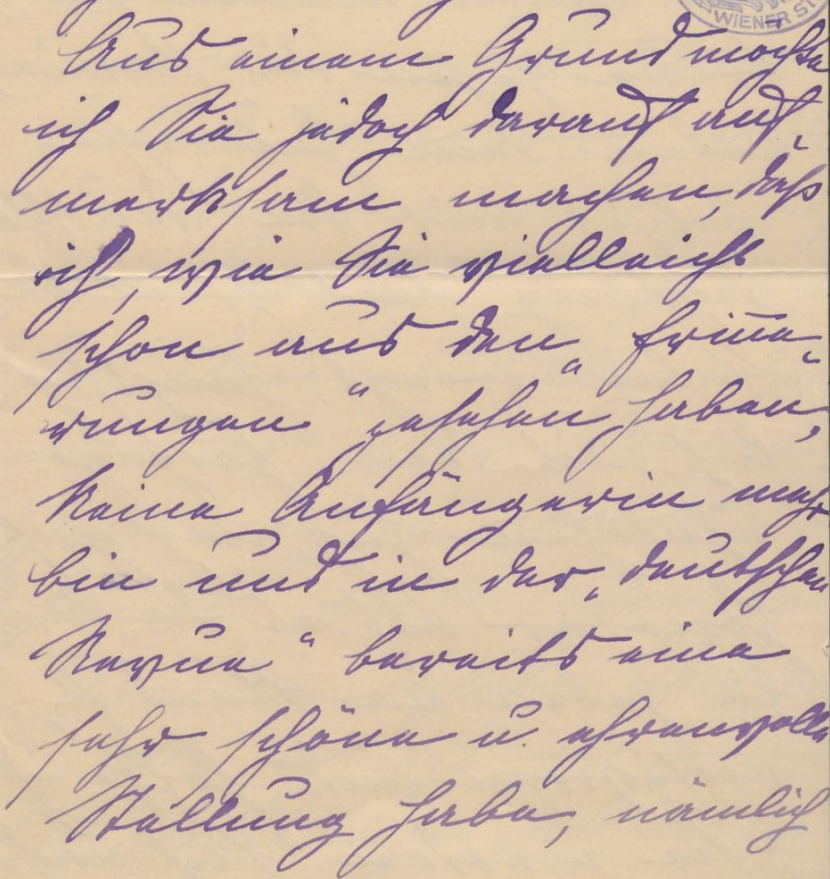 WIENER ST
Aus einem Grund möchte
ich Sie jedoch darauf auf-
merksam machen, daß
ich, wie Sie vielleicht
schon aus den „Erinne-
rungen" gesehen haben,
keine Anfängerin mehr
bin und in der „deutschen
Revue" bereits eine
sehr schöne u. ehrenvolle
Stellung habe, nämlich